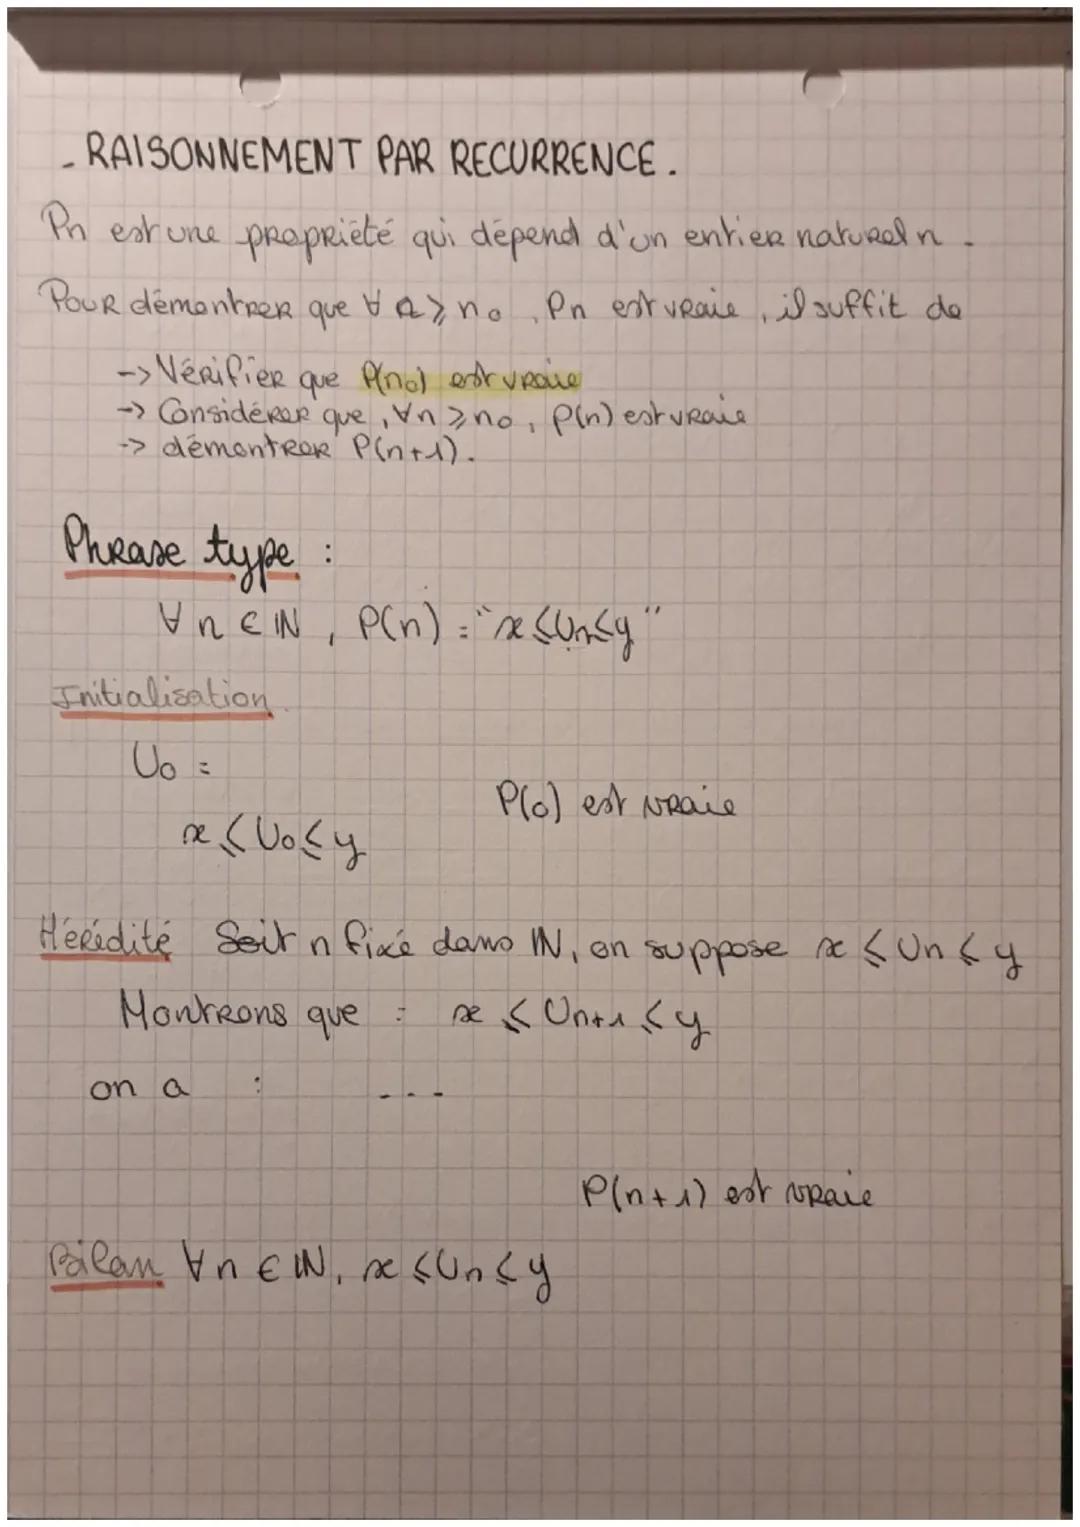 - RAISONNEMENT PAR RECURRENCE.
Pn est une propriété qui dépend d'un entier naturel n.
Pour démontrer que ∀ n ⩾ n₀, Pn est vraie, il suffit de
-> Vérifier que P(n₀) est vraie
-> Considérer que, ∀n ⩾ n₀, P(n) est vraie
-> démontrer P(n+1).
Phrase type :
∀ n ∈ ℕ, P(n) = "x ⩽ Un ⩽ y"
Initialisation.
U₀ =
P(0) est vraie
x ⩽ U₀ ⩽ y
Hérédité Soit n fixé dans ℕ, on suppose x ⩽ Un ⩽ y
Montrons que : x ⩽ Un+1 ⩽ y
on a : ...
P(n+1) est vraie
Bilan ∀n ∈ ℕ, x ⩽ Un ⩽ y